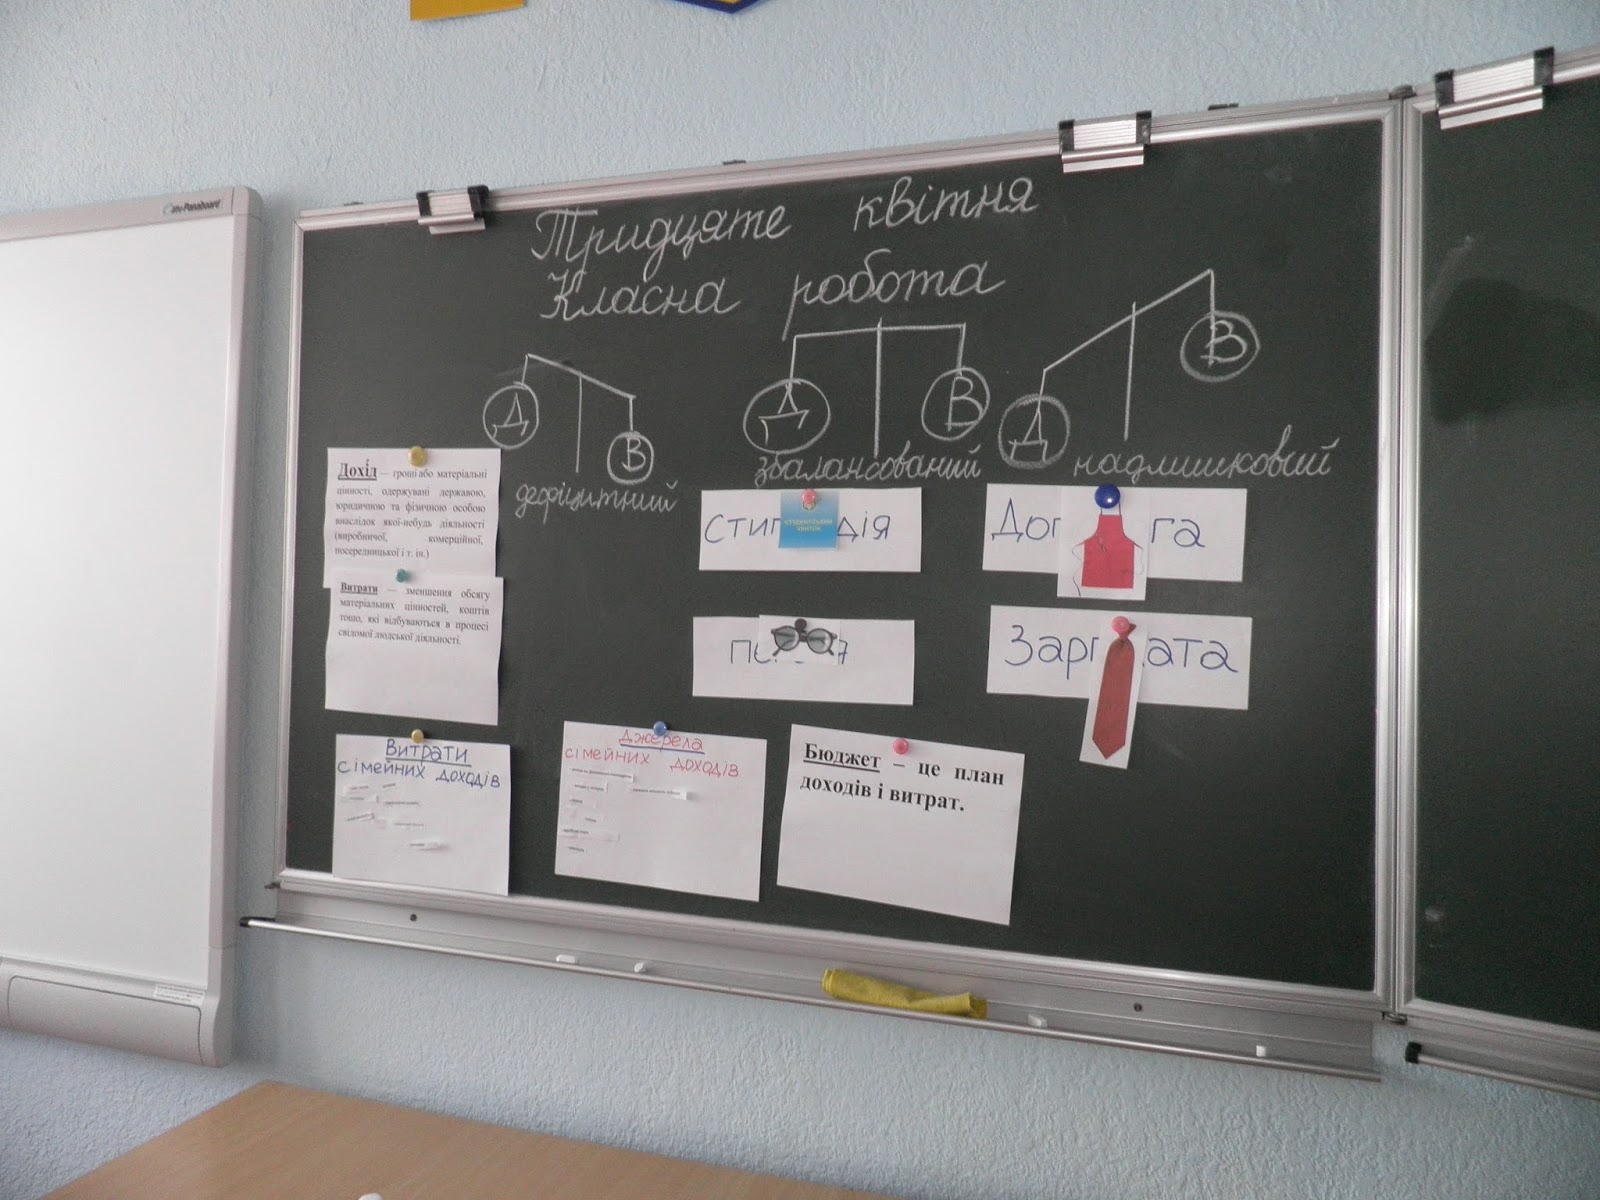 Panaboard
Тридцяте квітня
Класна робота
Д В
Д В
Д В
дефіцитний
збалансований
надлишковий
Дохід — гроші або матеріальні
цінності, одержувані державою,
юридичною та фізичною особою
внаслідок якої-небудь діяльності
(виробничої, комерційної,
посередницької і т. ін.)
Витрати — зменшення обсягу
матеріальних цінностей, коштів
тощо, які відбуваються в процесі
свідомої людської діяльності.
Стип дія
Доп га
пе я
Зарп ата
Витрати
сімейних доходів
Джерела
сімейних доходів
Бюджет – це план
доходів і витрат.